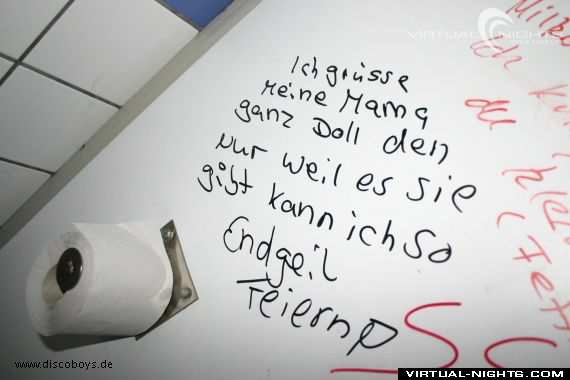 VIRTUAL NIGHTS
Ich grüsse
meine Mama
ganz Doll den
nur weil es sie
gibt kann ich so
Endgeil
Feiern
ich
du
www.discoboys.de
VIRTUAL-NIGHTS.COM